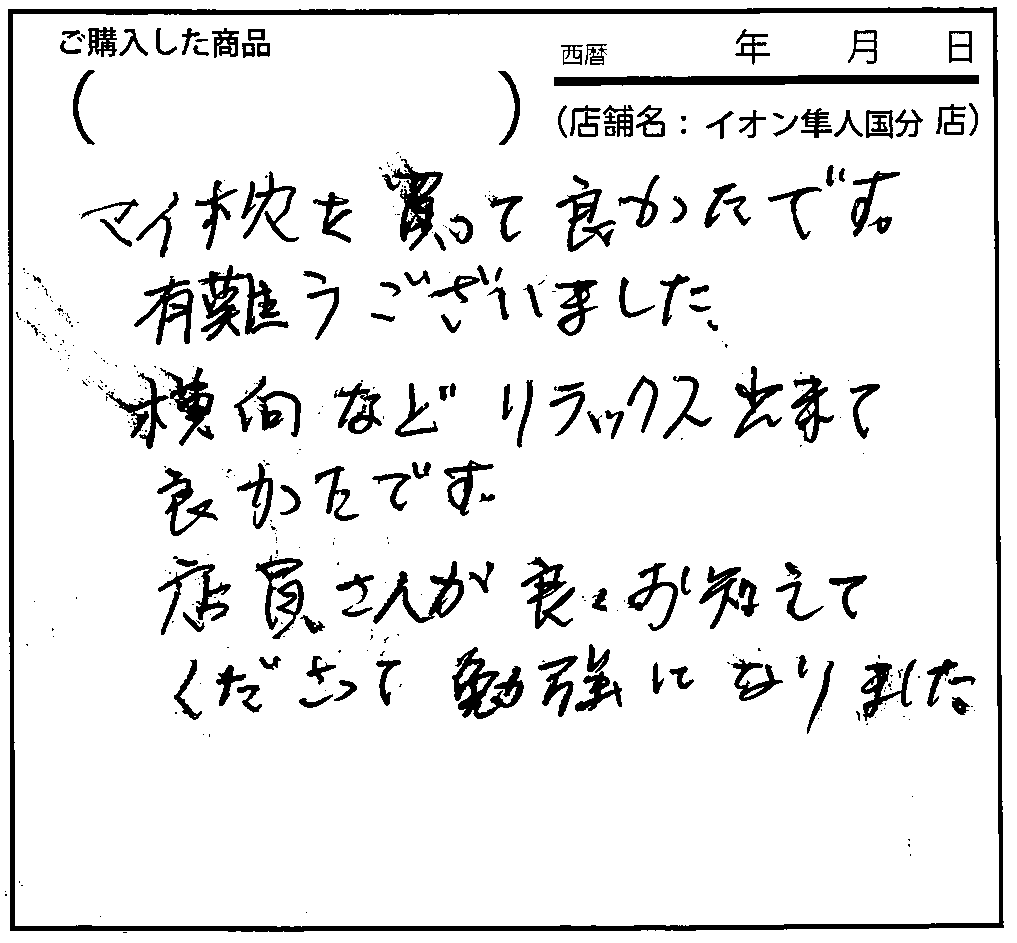 ご購入した商品
西暦 年 月 日
( )
(店舗名：イオン隼人国分 店)
マイ枕を買って良かったです。
有難うございました。
横向などリラックス出来て
良かたです。
店員さんが良くお知えて
くださって勉強になりました。